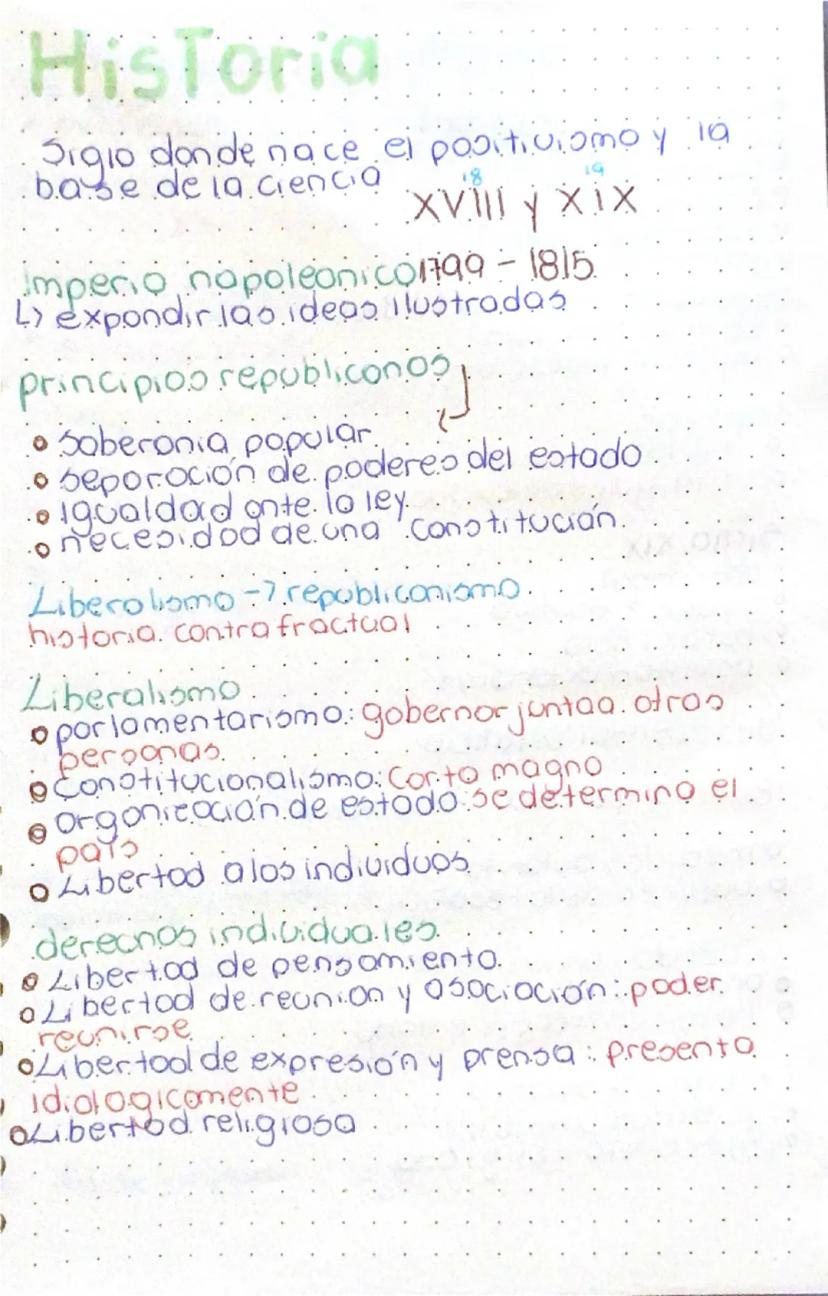 HisToria
Siglo donde nace el positivismo y la
base de la ciencia
18 19
XVIII y XiX
Imperio napoleonico 1799 - 1815
L> expondir las ideas ilustradas
principios republiconos
soberonia popular
seporoción de poderes del estado
igualdad onte lo ley
necesidod de una constitución
Liberolismo -> republiconismo
historia contrafractual
Liberalismo
porlomentarismo: gobernor junto a otros
personas
constitucionalismo: Corto magno
orgonización de estodo: se determino el
país
Libertod a los individuos
derechos individuales
Libertod de pensomiento
Libertod de reunion y osociocion: poder
reunirse
Libertod de expresión y prensa: presento
idiologicomente
Libertod religiosa